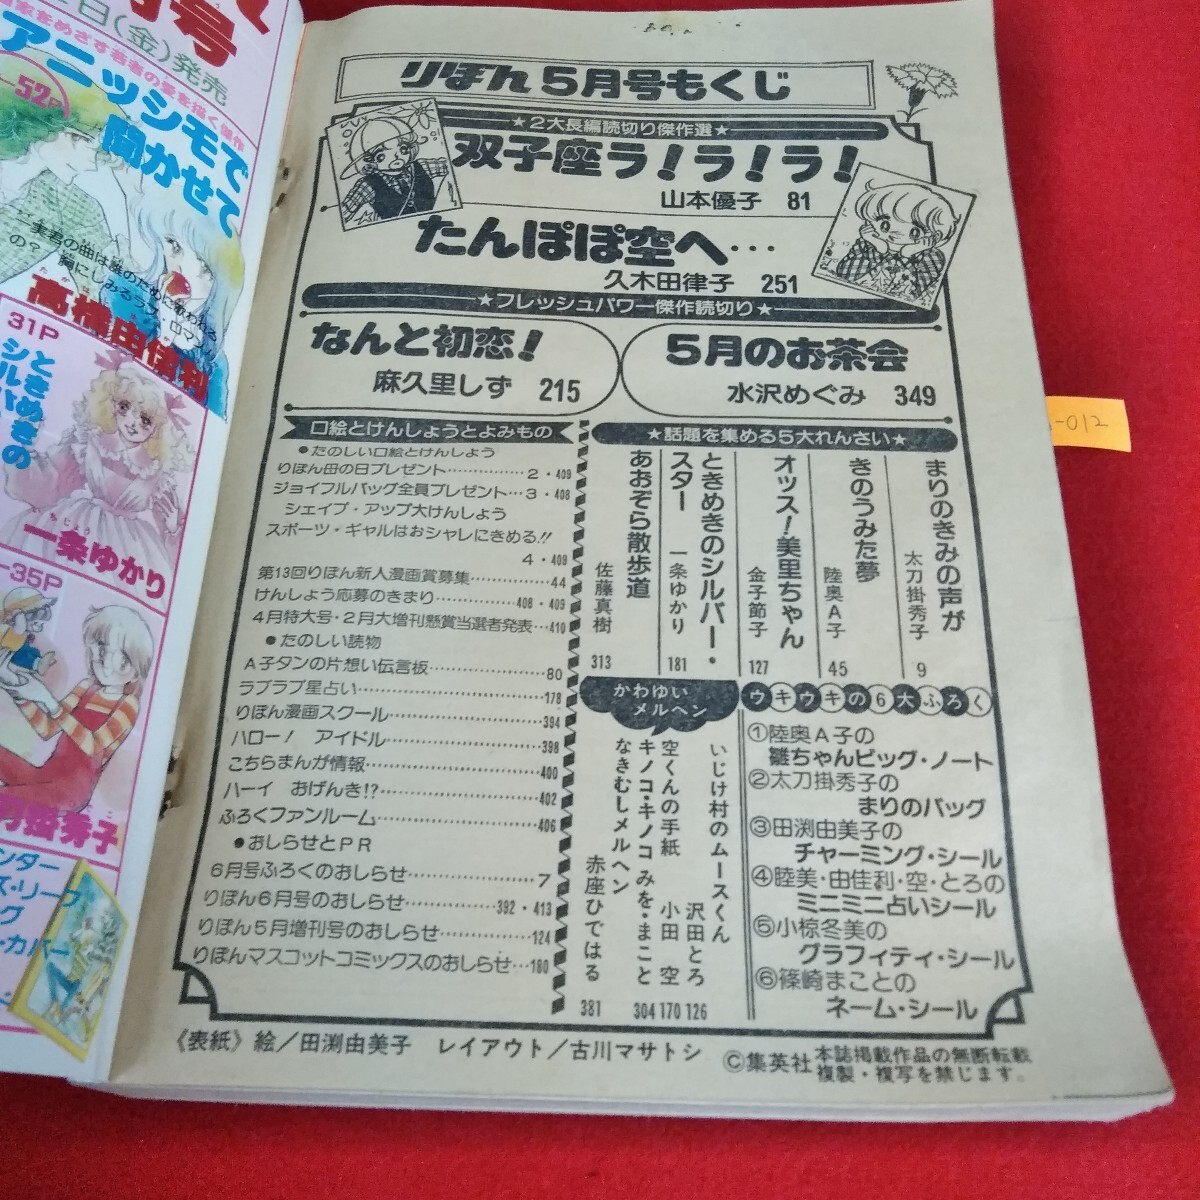 日(金)発売
アニッシモで
聞かせて
52P
実君の曲は誰のために歌われるの?
胸にしみるラブ・ロマン
高橋由佳利
31P
ときめきの
一条ゆかり
35P
りぼん5月号もくじ
★2大長編読切り傑作選★
双子座ラ!ラ!ラ!
山本優子 81
たんぽぽ空へ…
久木田律子 251
★フレッシュパワー傑作読切り★
なんと初恋!
麻久里しず 215
5月のお茶会
水沢めぐみ 349
口絵とけんしょうとよみもの
●たのしい口絵とけんしょう
りぼん母の日プレゼント…………2・409
ジョイフルバッグ全員プレゼント…3・408
シェイプ・アップ大けんしょう
スポーツ・ギャルはおシャレにきめる!!
4・409
第13回りぼん新人漫画賞募集…………44
けんしょう応募のきまり…………408・409
4月特大号・2月大増刊懸賞当選者発表…410
●たのしい読物
A子タンの片想い伝言板…………80
ラブラブ星占い…………178
りぼん漫画スクール…………394
ハロー! アイドル…………398
こちらまんが情報…………400
ハーイ おげんき!?…………402
ふろくファンルーム…………406
●おしらせとPR
6月号ふろくのおしらせ…………7
りぼん6月号のおしらせ…………392・413
りぼん5月増刊号のおしらせ…………124
りぼんマスコットコミックスのおしらせ…180
★話題を集める5大れんさい★
まりのきみの声が
太刀掛秀子 9
きのうみた夢
陸奥A子 45
オッス!美里ちゃん
金子節子 127
ときめきのシルバー・スター
一条ゆかり 181
あおぞら散歩道
佐藤真樹 313
かわゆい
メルヘン
いじけ村のムースくん
沢田とろ 126
空くんの手紙
小田空 170
キノコ・キノコ
みを・まこと 304
なきむしメルヘン
赤座ひではる 381
ウキウキの6大ふろく
①陸奥A子の
雛ちゃんビッグ・ノート
②太刀掛秀子の
まりのバッグ
③田渕由美子の
チャーミング・シール
④睦美・由佳利・空・とろの
ミニミニ占いシール
⑤小椋冬美の
グラフィティ・シール
⑥篠崎まことの
ネーム・シール
《表紙》絵/田渕由美子 レイアウト/古川マサトシ
©集英社 本誌掲載作品の無断転載
複製・複写を禁じます。
-012